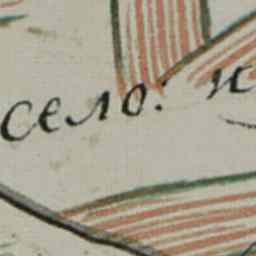 село. н